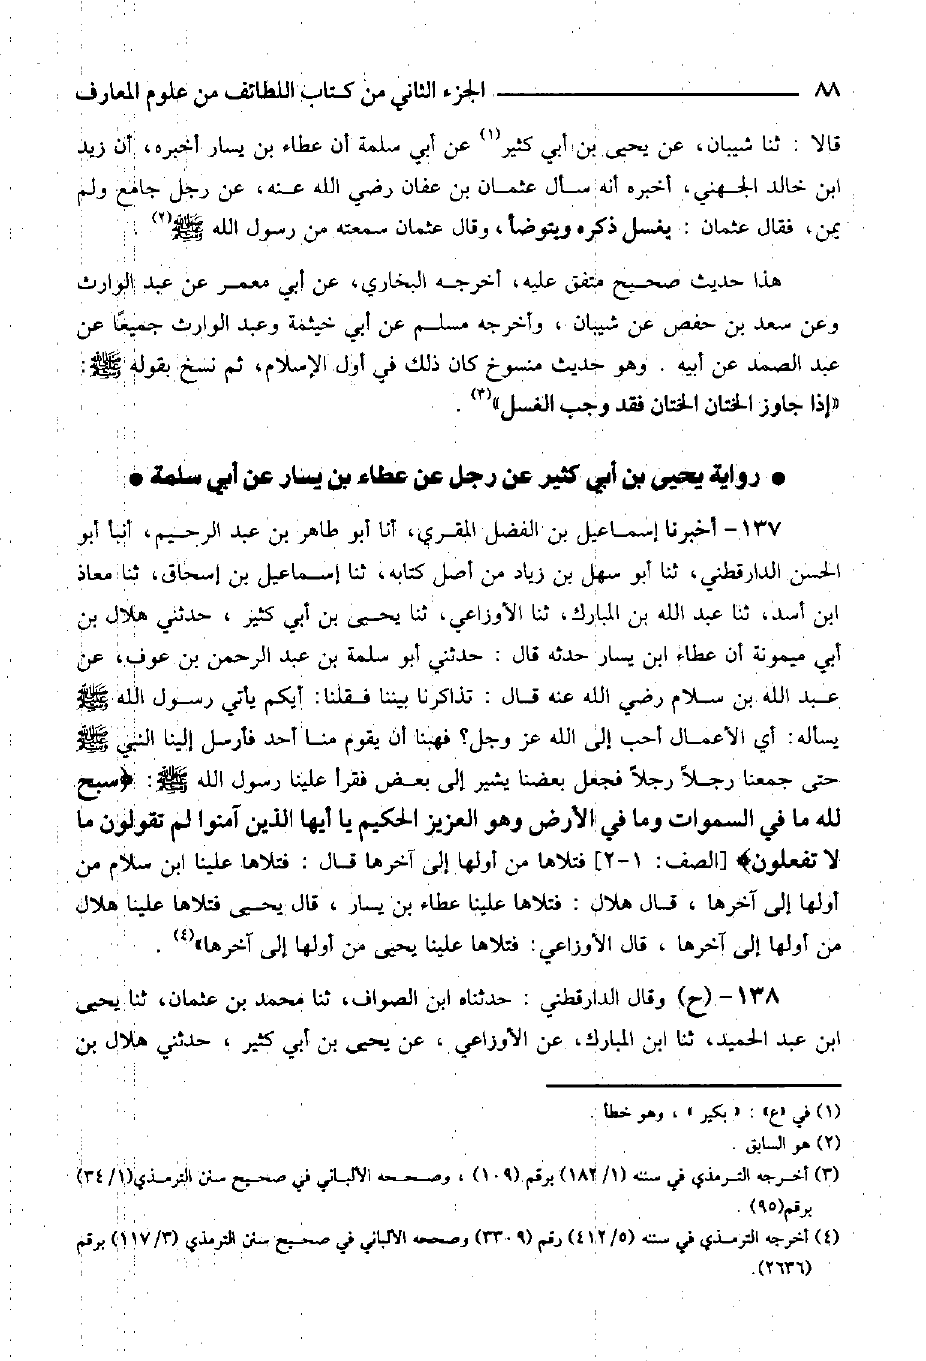 ٨٨ ــــــــــ الجزء الثاني من كتاب اللطائف من علوم المعارف
قالا : ثنا شيبان، عن يحيى بن أبي كثير(١) عن أبي سلمة أن عطاء بن يسار أخبره، أن زيد
ابن خالد الجهني، أخبره أنه سأل عثمان بن عفان رضي الله عنه، عن رجل جامع ولم
يمن، فقال عثمان : يغسل ذكره ويتوضأ، وقال عثمان سمعته من رسول الله ﷺ(٢) .
هذا حديث صحيح متفق عليه، أخرجه البخاري، عن أبي معمر عن عبد الوارث
وعن سعد بن حفص عن شيبان ، وأخرجه مسلم عن أبي خيثمة وعبد الوارث جميعًا عن
عبد الصمد عن أبيه . وهو حديث منسوخ كان ذلك في أول الإسلام، ثم نسخ بقوله ﷺ:
«إذا جاوز الختان الختان فقد وجب الغسل»(٣) .
● رواية يحيى بن أبي كثير عن رجل عن عطاء بن يسار عن أبي سلمة ●
١٣٧- أخبرنا إسماعيل بن الفضل المقري، أنا أبو طاهر بن عبد الرحيم، أنبأ أبو
الحسن الدارقطني، ثنا أبو سهل بن زياد من أصل كتابه، ثنا إسماعيل بن إسحاق، ثنا معاذ
ابن أسد، ثنا عبد الله بن المبارك، ثنا الأوزاعي، ثنا يحيى بن أبي كثير ، حدثني هلال بن
أبي ميمونة أن عطاء ابن يسار حدثه قال : حدثني أبو سلمة بن عبد الرحمن بن عوف، عن
عبد الله بن سلام رضي الله عنه قال : تذاكرنا بيننا فقلنا: أيكم يأتي رسول الله ﷺ
يسأله: أي الأعمال أحب إلى الله عز وجل؟ فهبنا أن يقوم منا أحد فأرسل إلينا النبي ﷺ
حتى جمعنا رجلاً رجلاً فجعل بعضنا يشير إلى بعض فقرأ علينا رسول الله ﷺ: ﴿سبح
لله ما في السموات وما في الأرض وهو العزيز الحكيم يا أيها الذين آمنوا لم تقولون ما
لا تفعلون﴾ [الصف: ١-٢] فتلاها من أولها إلى آخرها قال : فتلاها علينا ابن سلام من
أولها إلى آخرها ، قال هلال : فتلاها علينا عطاء بن يسار ، قال يحيى فتلاها علينا هلال
من أولها إلى آخرها ، قال الأوزاعي: فتلاها علينا يحيى من أولها إلى آخرها»(٤) .
١٣٨- (ح) وقال الدارقطني : حدثناه ابن الصواف، ثنا محمد بن عثمان، ثنا يحيى
ابن عبد الحميد، ثنا ابن المبارك، عن الأوزاعي ، عن يحيى بن أبي كثير ، حدثني هلال بن
(١) في «ع» : «بكير» ، وهو خطأ .
(٢) هو السابق .
(٣) أخرجه الترمذي في سننه (١/ ١٨٢) برقم (١٠٩) ، وصححه الألباني في صحيح سنن الترمذي(١/ ٣٤)
برقم(٩٥) .
(٤) أخرجه الترمذي في سننه (٥/ ٤١٢) رقم (٣٣٠٩) وصححه الألباني في صحيح سنن الترمذي (٣/ ١١٧) برقم
(٢٦٣٦).